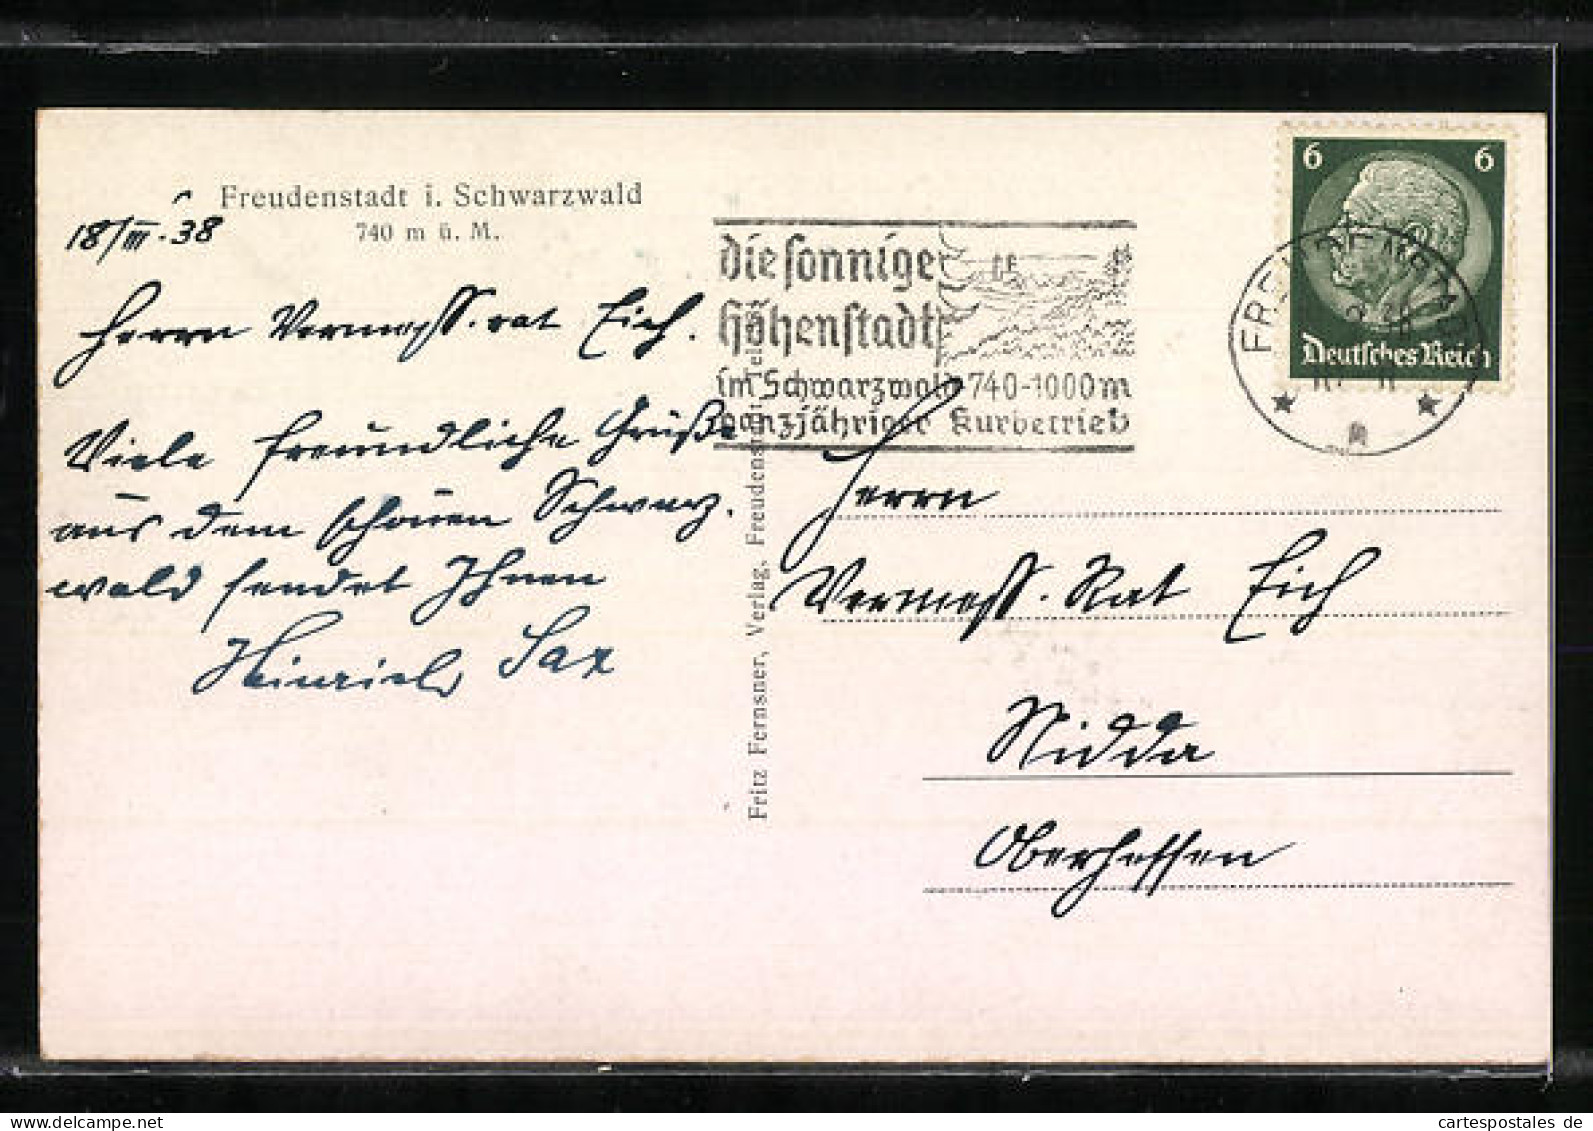 Freudenstadt i. Schwarzwald
740 m ü. M.
18/III.38
Herrn Vermess.rat Eich.
Viele freundliche Grüße
aus dem schönen Schwarz-
wald sendet Ihnen
Heinrich Sax
Fritz Fernsner, Verlag, Freudenstadt
die sonnige
Höhenstadt
im Schwarzwald 740-1000m
ganzjähriger Kurbetrieb
6 6
Deutsches Reich
FREUDENSTADT
Herrn
Vermess. Rat Eich
Nidda
Oberhessen
www.delcampe.net
cartespostales de